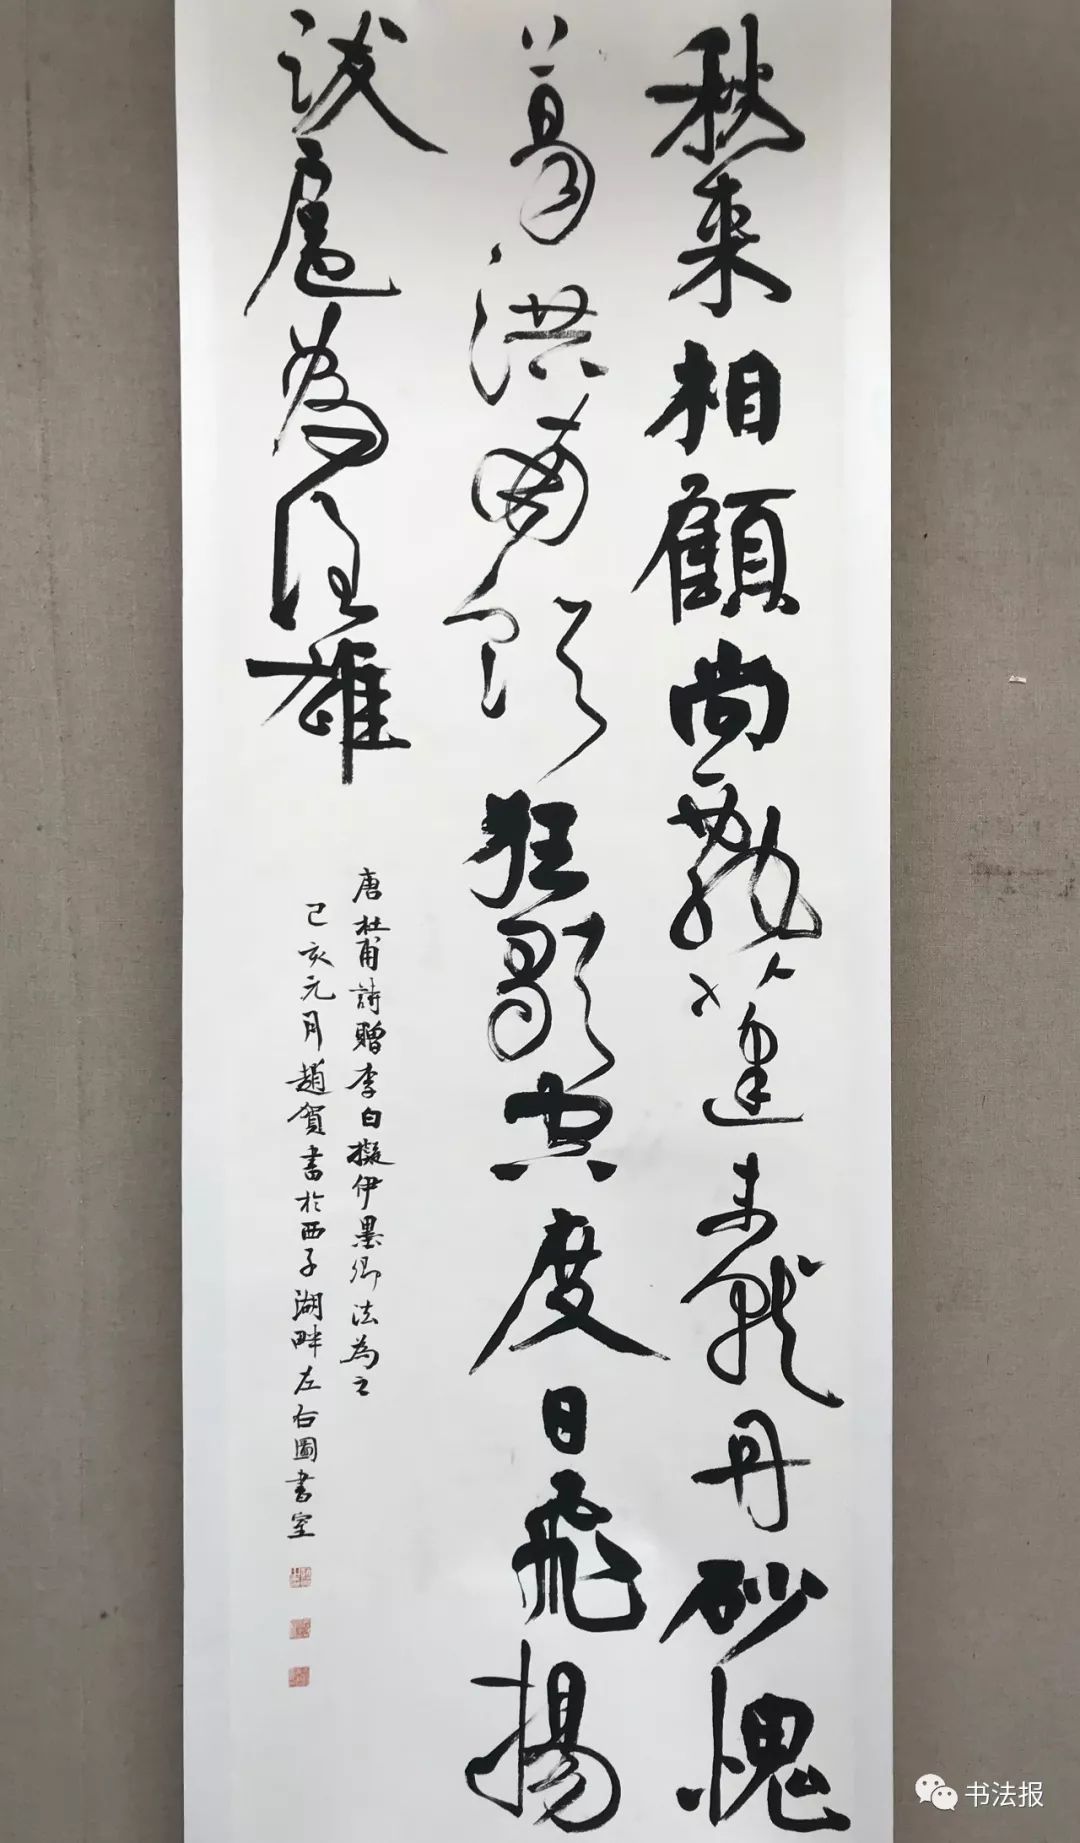 秋來相顧尚飄蓬未就丹砂愧
葛洪痛飲狂歌空度日飛揚
跋扈為誰雄
唐杜甫詩贈李白擬伊墨卿法為之
己亥元月趙賀書於西子湖畔左右圖書室
书法报